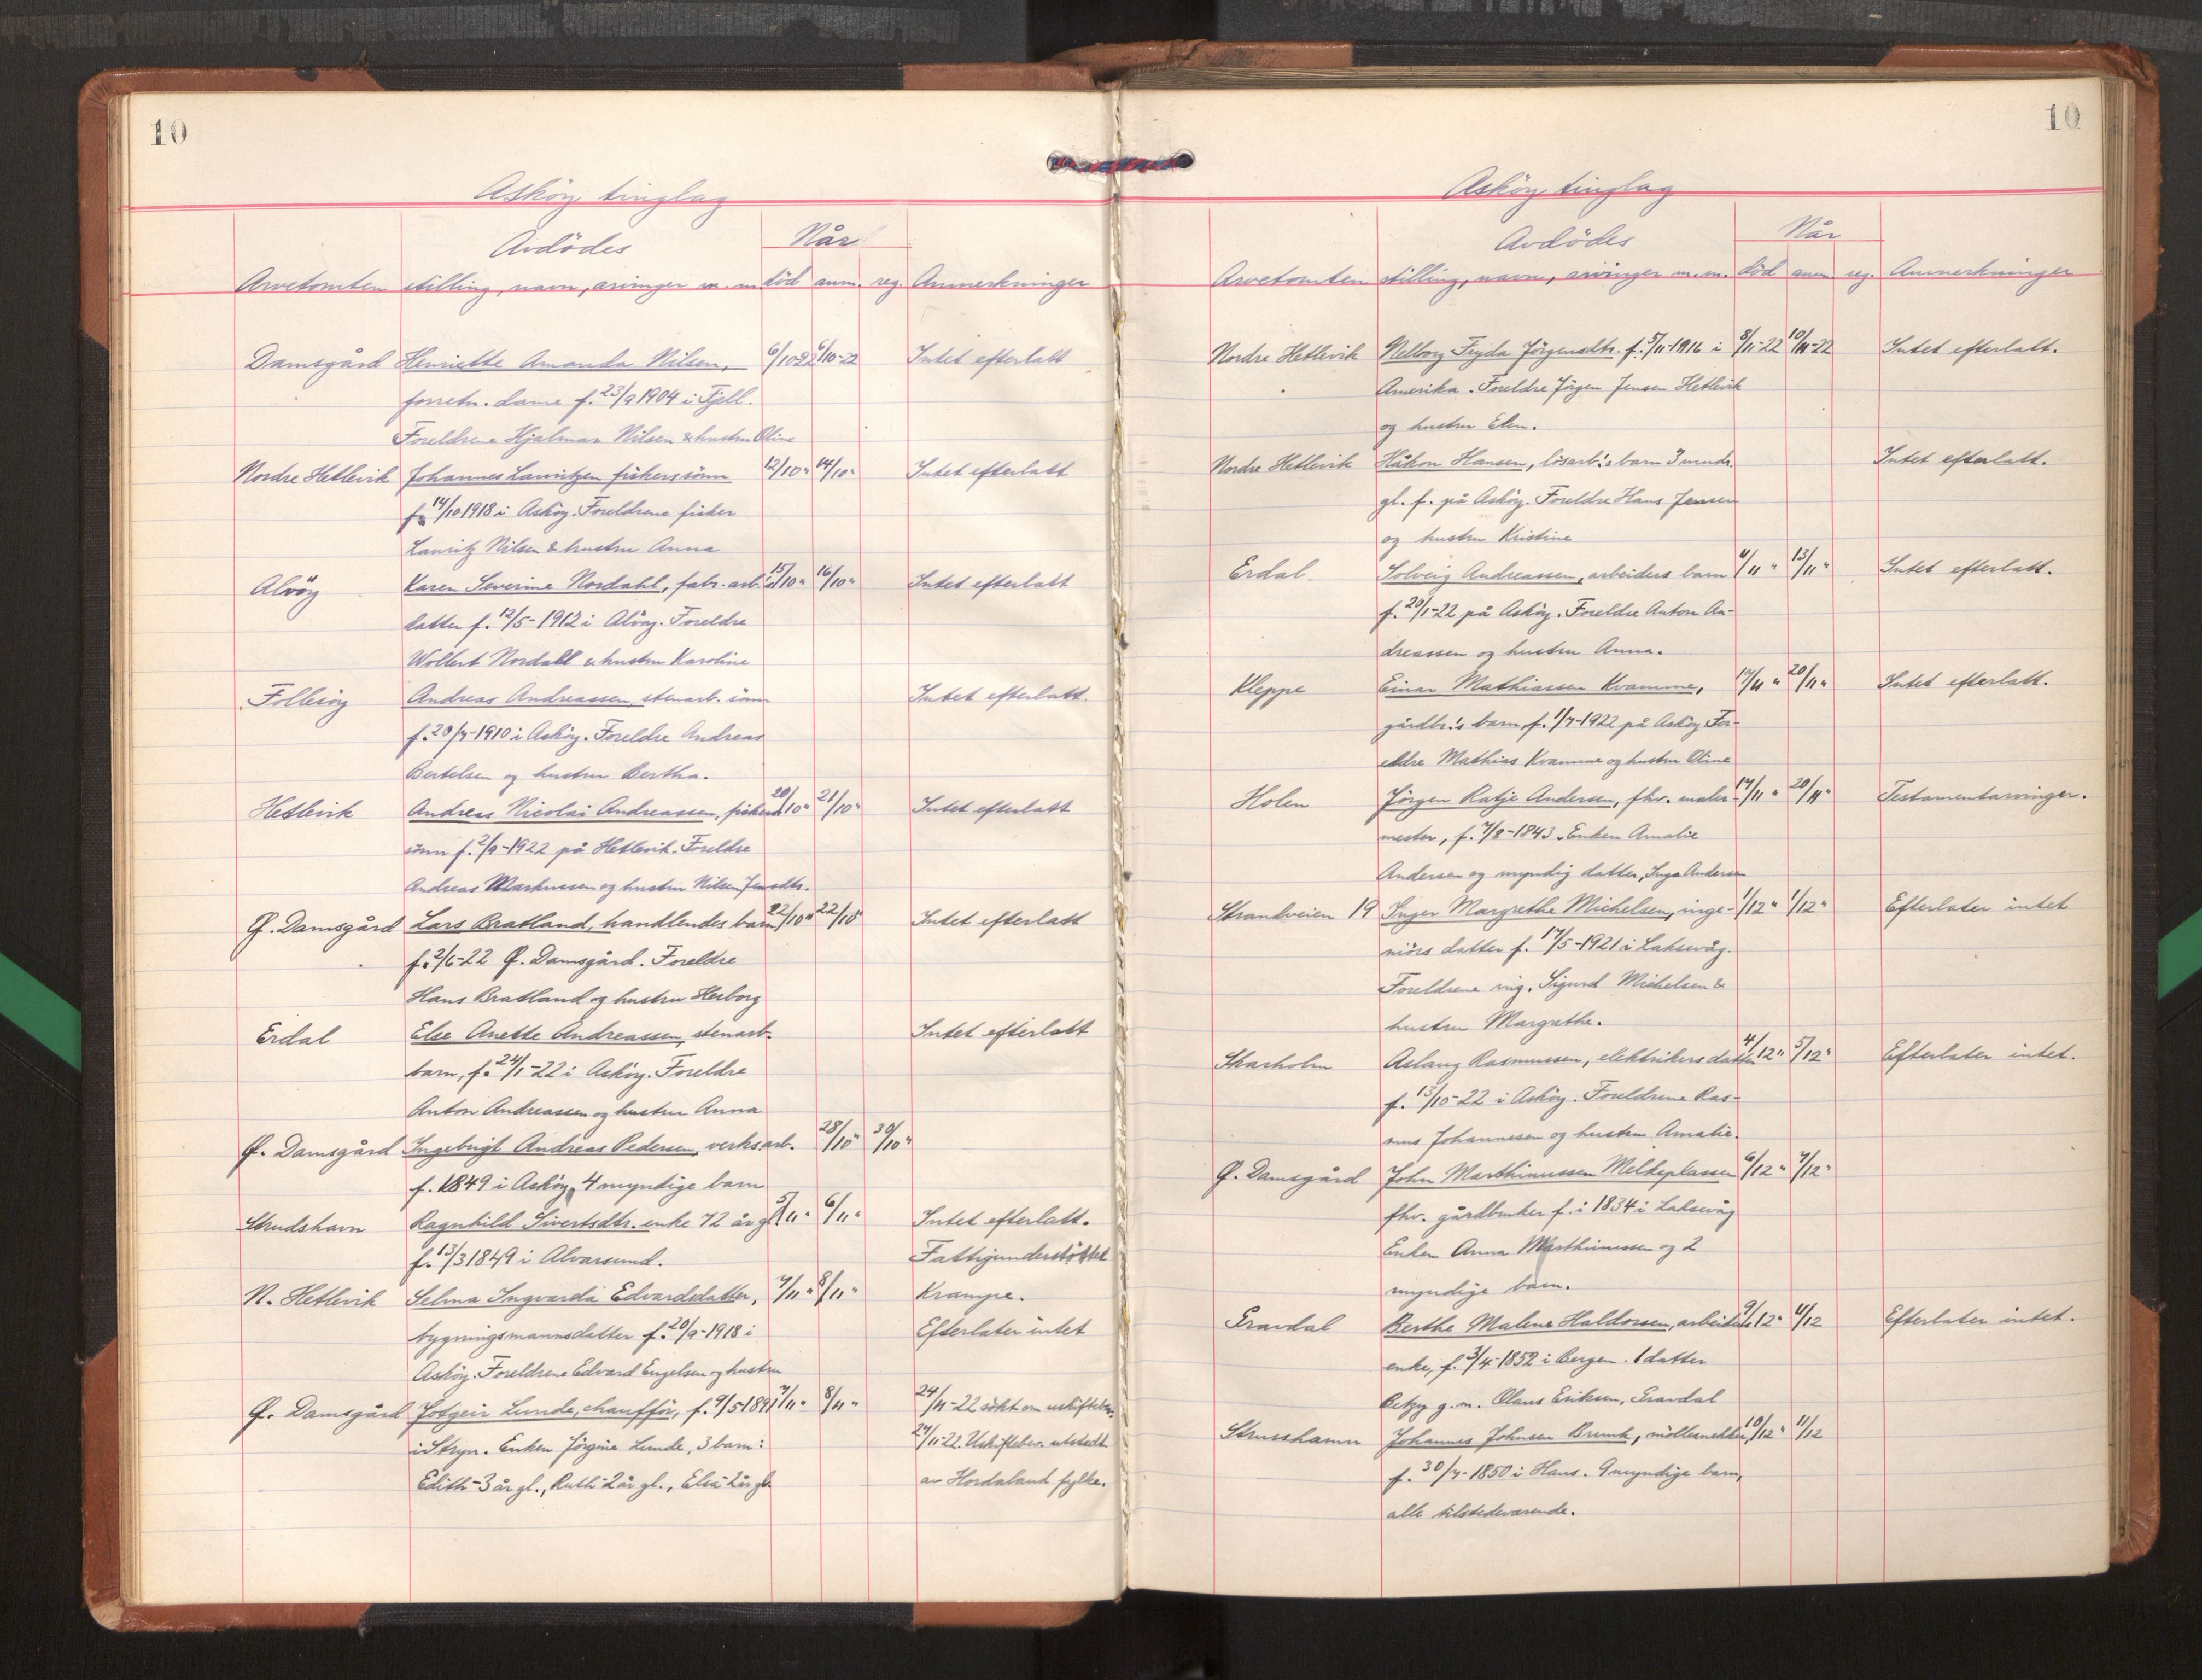 10
Asköy tinglag
Avdödes
Når
Arvetomten stilling, navn, arvinger m. m. död anm. reg. Anmerkninger
Damsgård Henriette Amanda Nilsen, 6/10-22 6/10-22 Intet efterlatt
forretn. dame f. 23/9 1904 i Fjell.
Foreldrene Hjalmar Nilsen & hustru Oline
Nordre Hetlevik Johannes Lauritzen fiskers sönn 12/10" 14/10" Intet efterlatt
f. 14/10 1918 i Asköy. Foreldrene fisker
Lauritz Nilsen & hustru Anna
Alvöy Karen Severine Nordahl, fabr. arb. 15/10" 16/10" Intet efterlatt
datter f. 12/5-1912 i Alvöy. Foreldre
Wollert Nordahl & hustru Karoline
Follesöy Andreas Andreassen, stenarb. sönn Intet efterlatt.
f. 20/7-1910 i Asköy. Foreldre Andreas
Bertelsen og hustru Bertha.
Hetlevik Andreas Nicolai Andreassen, fiskers 20/10" 21/10" Intet efterlatt
sönn f. 2/9-1922 på Hetlevik. Foreldre
Andreas Markussen og hustru Nilsen Jensdtr.
Ø. Damsgård Lars Bratland, handlendes barn 22/10" 22/10" Intet efterlatt
f. 2/6-22 Ø. Damsgård. Foreldre
Hans Bratland og hustru Herborg
Erdal Else Anette Andreassen, stenarb. Intet efterlatt
barn, f. 24/1-22 i Asköy. Foreldre
Anton Andreassen og hustru Anna
Ø. Damsgård Ingebrigt Andreas Pedersen, verksarb. 28/10" 30/10"
f. 1849 i Asköy, 4 myndige barn
Strudshavn Ragnhild Sivertsdtr. enke 72 år gl. 5/11" 6/11" Intet efterlatt.
f. 13/3 1849 i Alvarsund. Fattigunderstöttet
N. Hetlevik Selma Ingvarda Edvardsdatter, 7/11" 8/11" Krampe.
bygningsmannsdatter f. 20/9-1918 i Efterlater intet
Asköy. Foreldrene Edvard Engelsen og hustru
Ø. Damsgård Jotgeir Lunde, chaufför, f. 9/5 1891 7/11" 8/11" 24/11-22 sökt om uskiftebev.
i Stryn. Enken Jörgine Lunde, 3 barn: 24/11-22. Uskiftebev. utstedt
Edith-3 år gl., Ruth-2 år gl., Elsa-2 år gl. av Hordaland fylke.
10
Asköy tinglag
Avdödes
Når
Arvetomten stilling, navn, arvinger m. m. död anm. reg. Anmerkninger
Nordre Hetlevik Nelborg Fryda Jörgensdtr. f. 5/11-1916 i 8/11-22 10/11-22 Intet efterlatt.
Amerika. Foreldre Jörgen Jensen Hetlevik
og hustru Elen.
Nordre Hetlevik Håkon Hansen, lösarb.'s barn 3 mndr. Intet efterlatt.
gl. f. på Asköy. Foreldre Hans Jensen
og hustru Kristine
Erdal Solveig Andreassen, arbeiders barn 11/11" 13/11" Intet efterlatt.
f. 20/1-22 på Asköy. Foreldre Anton An-
dreassen og hustru Anna.
Kleppe Einar Mathiassen Kvamme, 17/11" 20/11" Intet efterlatt.
gårdbr.'s barn, f. 1/7-1922 på Asköy For-
eldre Mathias Kvamme og hustru Oline
Holen Jörgen Ratje Andersen, fhv. maler- 17/11" 20/11" Testamentarvinger.
mester, f. 7/8-1843. Enken Amalie
Andersen og myndig datter, Inga Andersen
Strandveien 19 Inger Margrethe Michelsen, inge- 1/12" 1/12" Efterlater intet
niörs datter f. 17/5-1921 i Laksevåg.
Foreldrene ing. Sigurd Michelsen &
hustru Margrethe.
Skarholm Aslaug Rasmussen, elektrikers datter 4/12" 5/12" Efterlater intet.
f. 13/10-22 i Asköy. Foreldrene Ras-
mus Johannesen og hustru Amalie.
Ø. Damsgård John Marthinussen Melkeplassen 6/12" 7/12"
fhv. gårdbruker f. i 1834 i Laksevåg
Enken Anna Marthinussen og 2
myndige barn.
Gravdal Berthe Malene Haldorsen, arbeiders 9/12" 11/12 Efterlater intet.
enke, f. 3/4-1852 i Bergen. 1 datter
Betzy g. m. Olaus Eriksen, Gravdal
Strusshamn Johannes Johnsen Brunk, möllersnekker, 10/12" 11/12
f. 30/7-1850 i Haus. 9 myndige barn,
alle tilstedeværende.